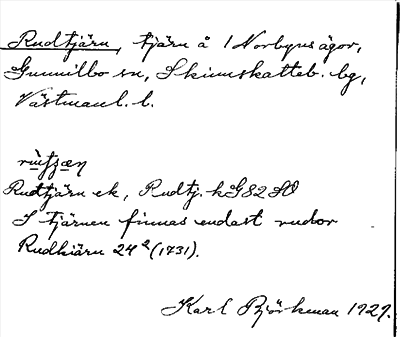 Rudtjärn, tjärn å 1 Norbyns ägor,
Gunnilbo sn, Skinnskatteb. bg,
Västmanl. l.
Rudtjärn ek, Rudtj. kG82SO
I tjärnen finnas endast rudor
Rudkiärn 24² (1731).
Karl Björkman 1929.